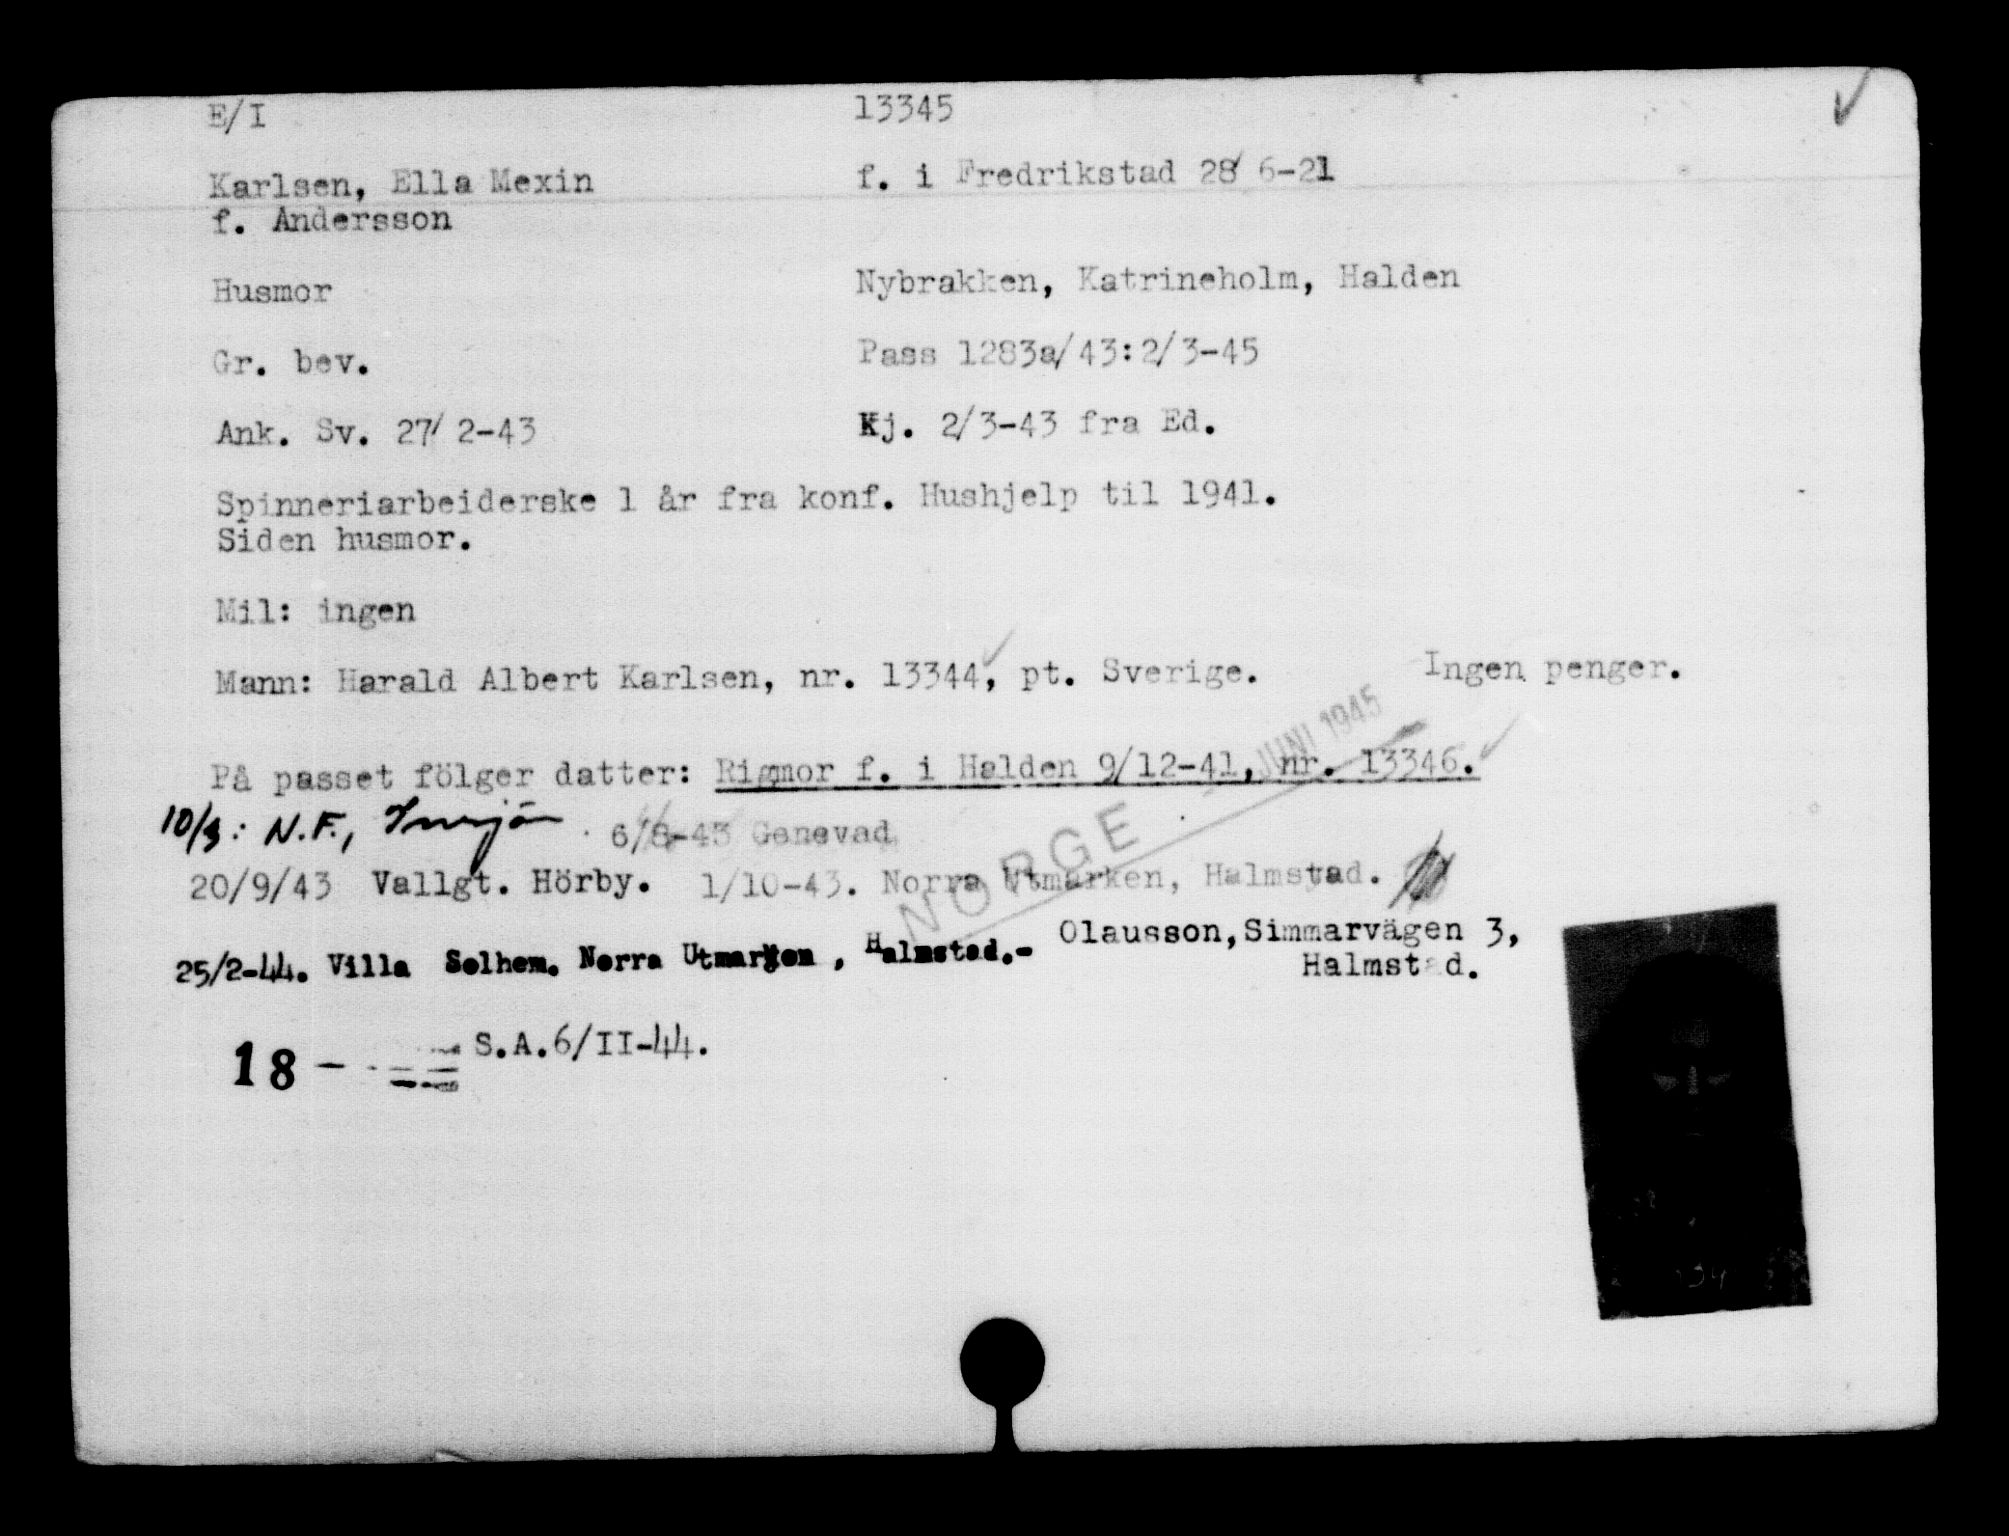 E/I 13345
Karlsen, Ella Mexin f. i Fredrikstad 28/ 6-21
f. Andersson
Husmor Nybrakken, Katrineholm, Halden
Gr. bev. Pass 1283a/43:2/3-45
Ank. Sv. 27/ 2-43 Kj. 2/3-43 fra Ed.
Spinneriarbeiderske 1 år fra konf. Hushjelp til 1941.
Siden husmor.
Mil: ingen
Mann: Harald Albert Karlsen, nr. 13344, pt. Sverige. Ingen penger.
JUNI 1945
På passet fölger datter: Rigmor f. i Halden 9/12-41, nr. 13346.
10/3: N.F., 6/8-43 Genevad
NORGE
20/9/43 Vallgt. Hörby. 1/10-43. Norra Utmarken, Halmstad.
25/2-44. Villa Solhem. Norra Utmarken, Halmstad.- Olausson, Simmarvägen 3,
Halmstad.
18 - S.A.6/II-44.